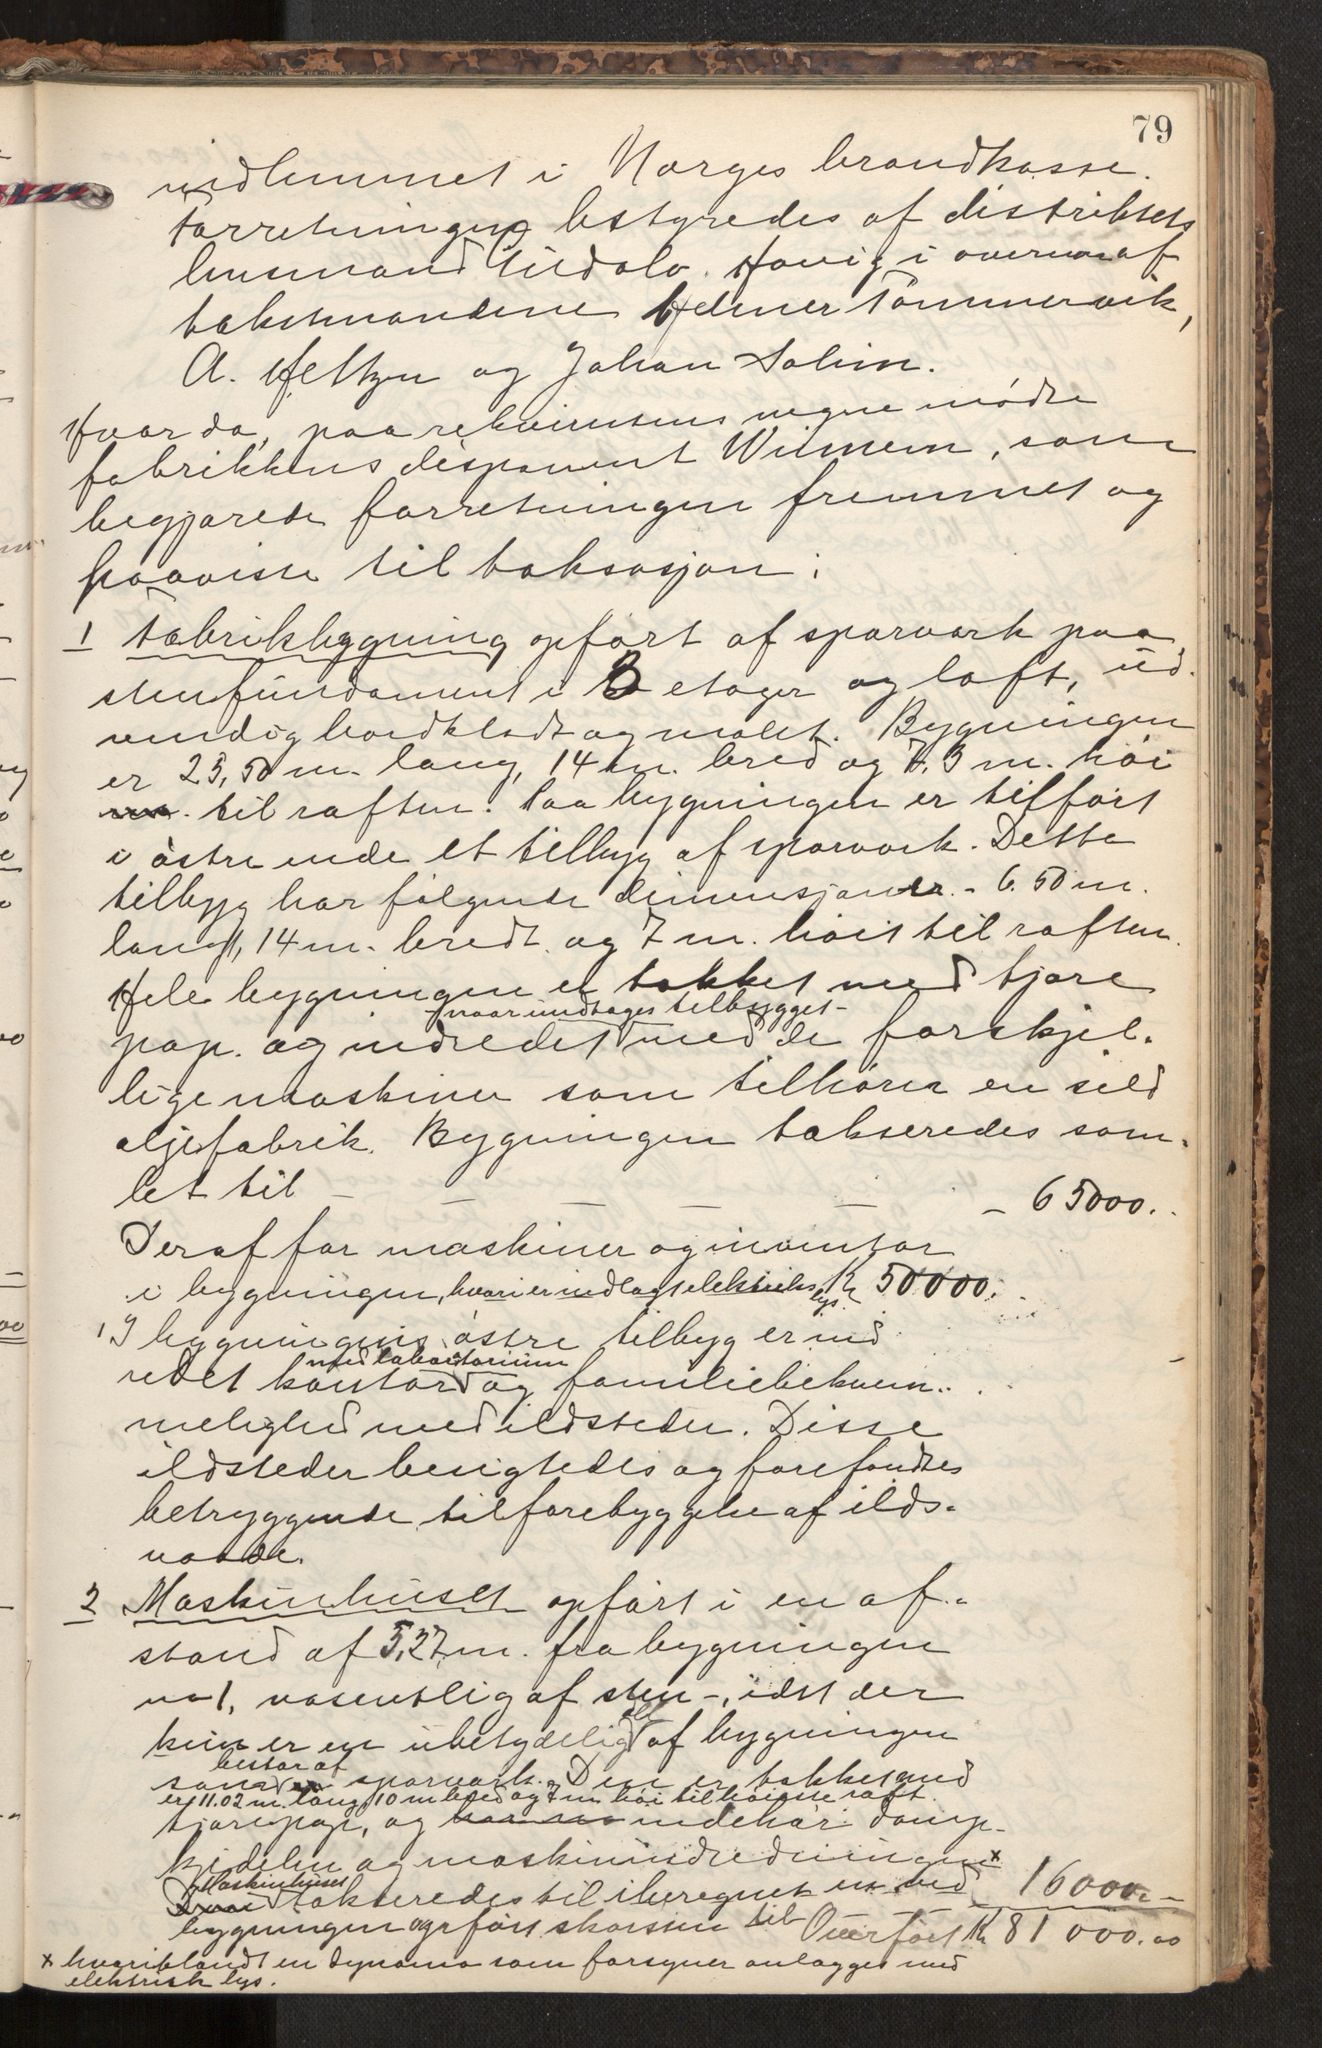 79
indlemmet i Norges brandkasse.
Forretningen bestyredes af distriktets
lensmand Hovig i overvær af
takstmændene Helmer Tømmervik,
A. Heltzen og Johan Solim.
Hvor da, paa rekvirentens vegne mødte
fabrikkens disponent, som
begjærede forretningen fremmet og
paaviste til taksasjon:
1 Fabrikbygning opført af sparværk paa
stenfundament i 3 etager og loft, ud-
vendig bordklædt og malet. Bygningen
er 23,50 m. lang, 14 m. bred og 7,3 m. høi
til raften. Paa bygningen er tilført
i østre ende et tilbyg af sparværk. Dette
tilbyg har følgende dimensjoner. - 6.50 m.
langt, 14 m. bredt og 7 m. høit til raften.
Hele bygningen er tækket med tjære
- naar undtages tilbygget -
pap. og indredet med de forskjel-
lige maskiner som tilhører en sild
oljefabrik. Bygningen takseredes sam-
let til - - - - - - 65000..
Deraf for maskiner og inventar
i bygningen, hvori er indlagt elektrisk lys Kr 50000.
I bygningens østre tilbyg er ind
med laboratorium
redet kontor og familiebekvem-
melighed med ildsteder. Disse
ildsteder besigtedes og forefandtes
betryggende til forebyggelse af ilds-
vaade.
2 Maskinhuset opført i en af-
stand af 5,27 m. fra bygningen
no 1, væsentlig af sten -, idet der
kun er en ubetydelig del af bygningen
bestaar af
som sparværk. Den er tækket med
er 11.02 m. lang, 10 m bred og 7 m. høi til høieste raft.
tjærepap, og indehar damp-
kjedelen og maskinindredningen x
Maskinhuset
takseredes til iberegnet en ved 16000.-
bygningen opført skorsten til Overført Kr 81 000.00
x hvoriblandt en dynamo som forsyner anlægget med
elektrisk lys.